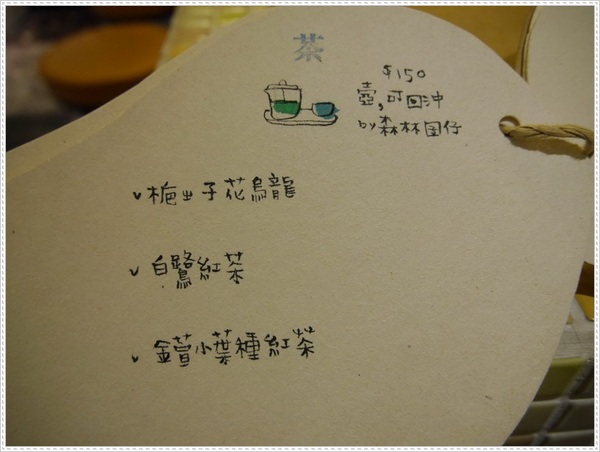 茶
$150
壺,可回沖
by森林囝仔
v 梔子花烏龍
v 白鷺紅茶
v 金萱小葉種紅茶